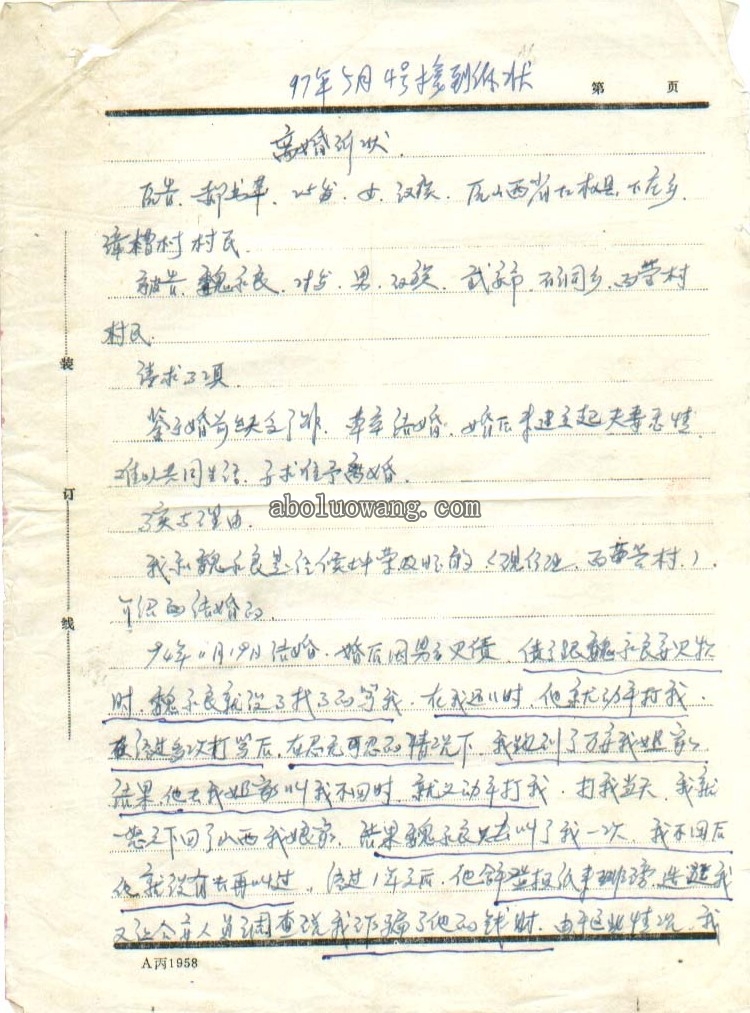 97年5月4号接到诉状
第 页
离婚诉状
原告 郝 25岁 女 汉族 山西省左权县 下庄乡
漳槽村村民
被告 魏永良 28岁 男 汉族 武安市 石洞乡 西营村
村民
请求事项
鉴于婚前缺乏了解 草率结婚 婚后未建立起夫妻感情
难以共同生活 要求准予离婚
装
订
线
事实与理由
aboluowang.com
我和魏永良是经 (现住址 西营村)
介绍而结婚的
94年11月19日结婚 婚后因男方欠债 债主跟魏永良要欠物
时 魏永良就没了找了的骂我 在我还口时 他就动手打我
在经过多次打骂后 在忍无可忍的情况下 我跑到了 我姐家
结果 他去我姐家叫我不回时 就又动手打我 打我当天 我就
一怒之下回了山西我娘家 结果魏永良只去叫了我一次 我不回后
他就没有去再叫过 经过1年之后 他 登报纸来 我
又让公安人员调查说我诈骗了他的钱财 由于这些情况 我
A丙1958